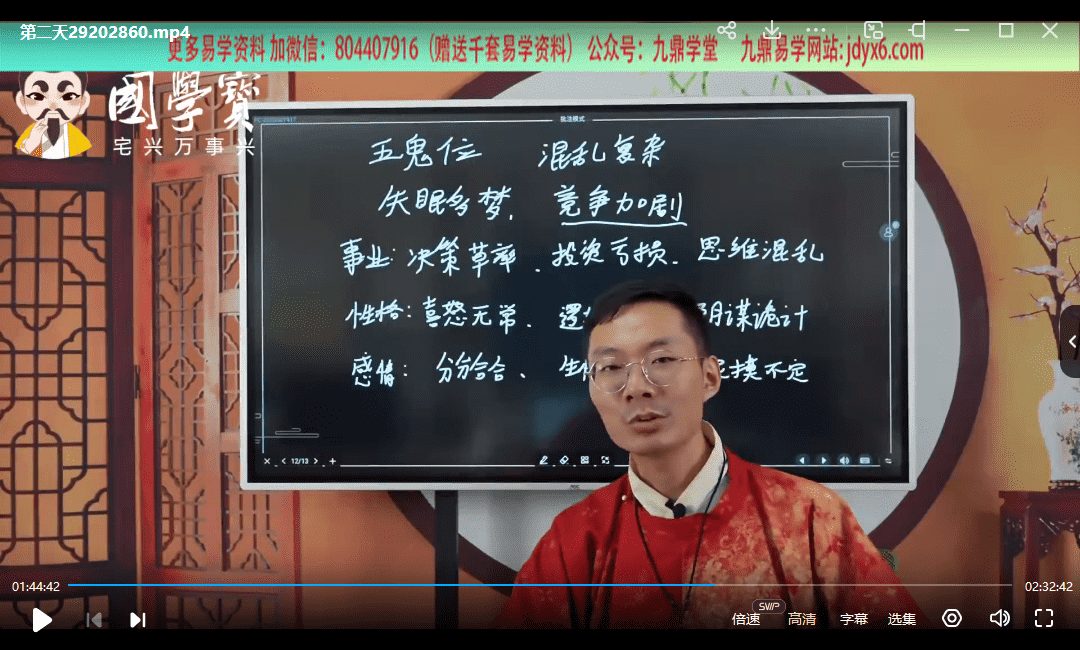 第二天29202860.mp4
更多易学资料 加微信：804407916（赠送千套易学资料） 公众号：九鼎学堂 九鼎易学网站:jdyx6.com
國學寶
宅兴万事兴
五鬼位 混乱复杂
失眠多梦. 竞争加剧
事业: 决策草率. 投资亏损. 思维混乱
性格: 喜怒无常. 阴谋诡计
感情: 分分合合、 捉摸不定
12/13
01:44:42
02:32:42
倍速 SVIP 高清 字幕 选集